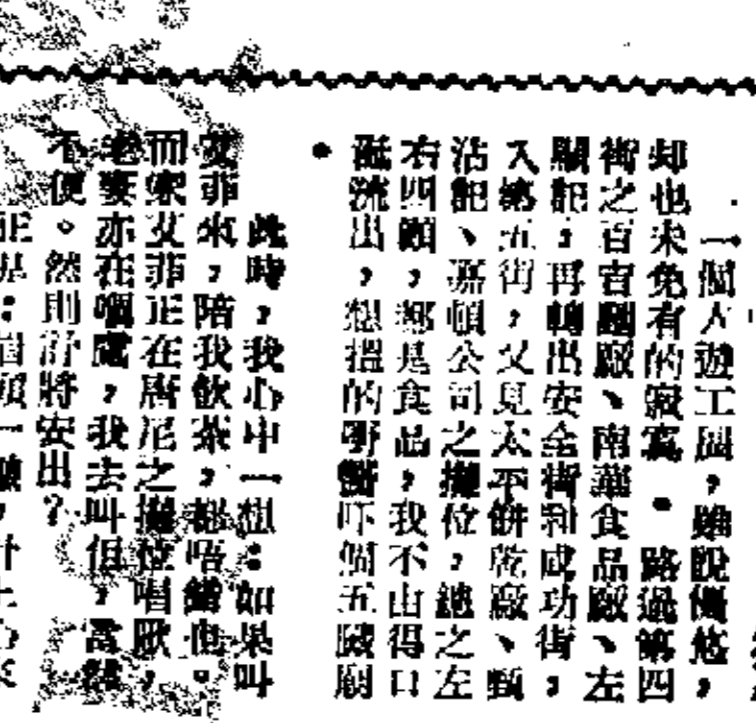 一個人遊工展，雖說優悠，
却也未免有的寂寞。路過第四
街之百吉麵廠、南華食品廠、左
顯記，再轉出安全街和成功街，
入第五街，又見太平餅乾廠、甄
沾記、嘉頓公司之攤位，總之左
右四顧，都是食品，我不由得口
涎流出，想搵的嘢醫吓個五臟廟
。
此時，我心中一想：如果叫
艾菲來，陪我飲茶，都唔錯。
而家艾菲正在唐尼之攤位唱歌，
老婆亦在嗰處，我去叫佢，當然
不便。然則計將安出？